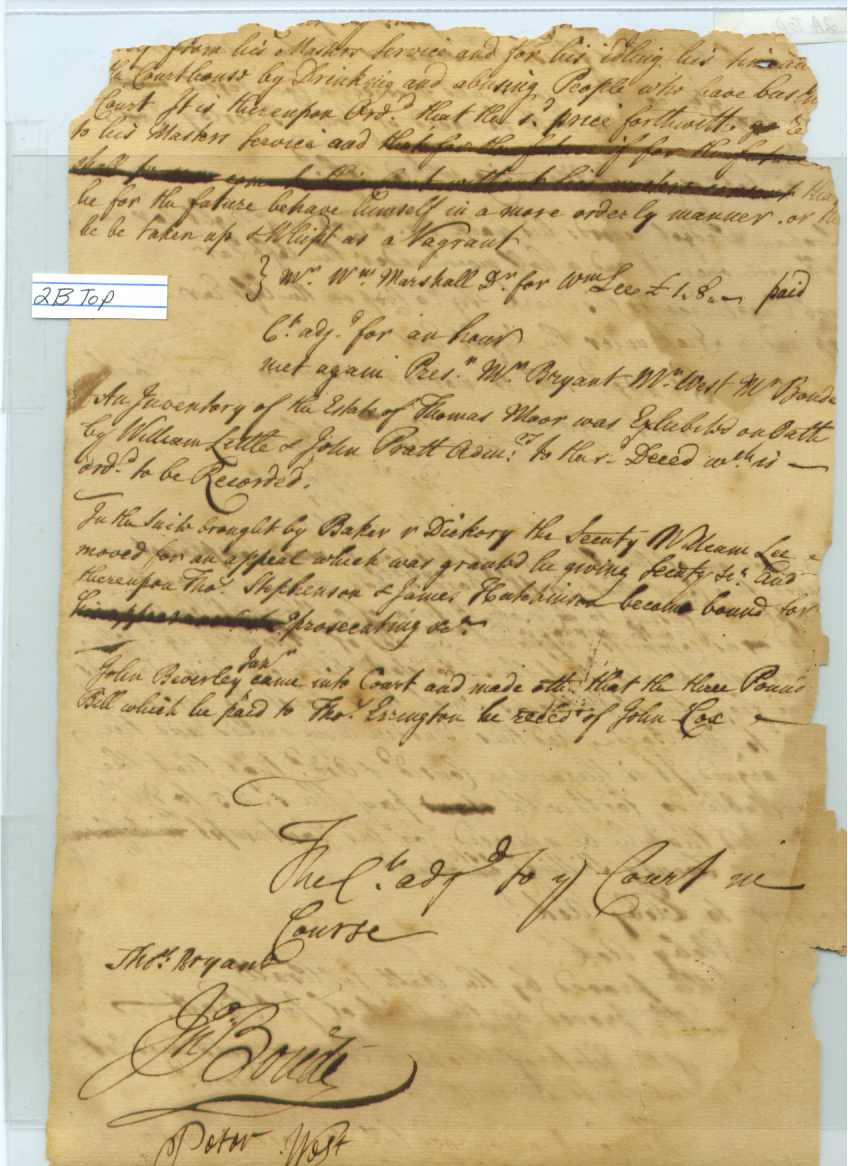 from his Masters Service and for his idling his time an
Courthouse by Drinking and abusing People who have business
Court It is thereupon Ord.d that the s.d price forthwith go
to his Masters Service and that for the future if for the future
shall without his masters consent that
he for the future behave himself in a more orderly manner. or
he be taken up & Whipt as a Vagrant
2B Top
} Mr. Wm. Marshall Dr. for Wm Lee £1.8.. paid
Ct. adj.d for an hour
met again Pres.nt Mr. Bryant Mr. West Mr Boude
An Inventory of the Estate of Thomas Moor was Exhibited on Oath
by William Little & John Pratt Adm.rs to the s.d Deced wch is
ord.d to be Recorded.
In the Suite brought by Baker v Dickory the Security William Lee
moved for an appeal which was granted he giving Security &c. and
thereupon Tho.s Stephenson & James Hutchinson become bound for
his prosecuting &c.
Jan.r
John Beverley came into Court and made oth that the three Pound
Bill which he paid to Tho.s Errington he reced of John Cox
The Ct. adj.d to ye Court in
Course
Thos. Bryant
Jno Boude
Peter West